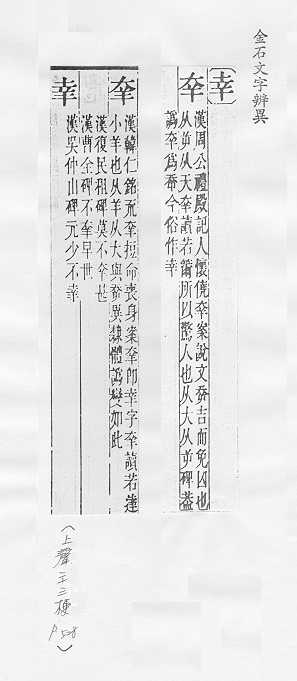 金石文字辨異
〔幸〕
㚔
漢周公禮殿記人懷僥㚔案說文㚔吉而免凶也
从屰从夭㚔讀若籋所以驚人也从大从屰碑蓋
譌㚔為㚔今俗作幸
㚔
漢韓仁銘不㚔短命喪身案㚔即幸字㚔讀若達
小羊也从羊从大與㚔異隸體譌變如此
漢復民租碑莫不㚔也
漢曹全碑不㚔早世
幸
漢吳仲山碑元少不幸
(上聲二三梗 P.508)